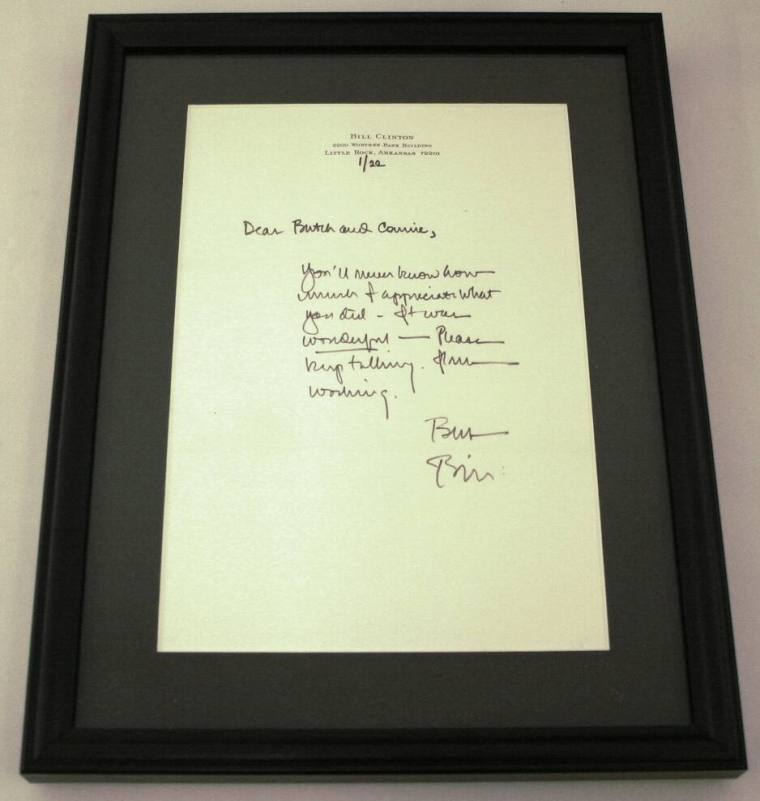 BILL CLINTON
2200 WORTHEN BANK BUILDING
LITTLE ROCK, ARKANSAS 72201
1/22
Dear Butch and Connie,
You'll never know how
much I appreciate what
you did - It was
wonderful — Please
keep talking. I'm
working.
Best
Bill